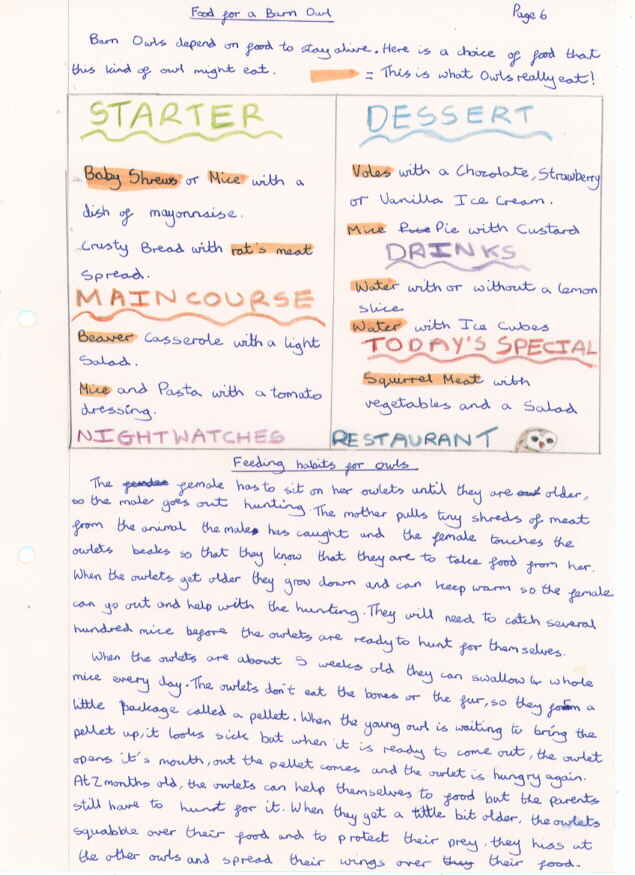 Food for a Barn Owl
Page 6
Barn Owls depend on food to stay alive. Here is a choice of food that
this kind of owl might eat. = This is what Owls really eat!
STARTER
Baby Shrews or Mice with a
dish of mayonnaise.
Crusty Bread with rat's meat
spread.
MAIN COURSE
Beaver Casserole with a light
Salad.
Mice and Pasta with a tomato
dressing.
NIGHTWATCHES
DESSERT
Voles with a Chocolate, Strawberry
or Vanilla Ice Cream.
Mice Pie with Custard
DRINKS
Water with or without a lemon
slice
Water with Ice Cubes
TODAY'S SPECIAL
Squirrel Meat with
vegetables and a Salad
RESTAURANT
Feeding habits for owls
The female has to sit on her owlets until they are older,
so the male goes out hunting. The mother pulls tiny shreds of meat
from the animal the male has caught and the female touches the
owlets beaks so that they know that they are to take food from her.
When the owlets get older they grow down and can keep warm so the female
can go out and help with the hunting. They will need to catch several
hundred mice before the owlets are ready to hunt for themselves.
When the owlets are about 5 weeks old they can swallow 4 whole
mice every day. The owlets don't eat the bones or the fur, so they form a
little package called a pellet. When the young owl is waiting to bring the
pellet up, it looks sick but when it is ready to come out, the owlet
opens it's mouth, out the pellet comes and the owlet is hungry again.
At 2 months old, the owlets can help themselves to food but the parents
still have to hunt for it. When they get a little bit older, the owlets
squabble over their food and to protect their prey, they hiss at
the other owls and spread their wings over their food.